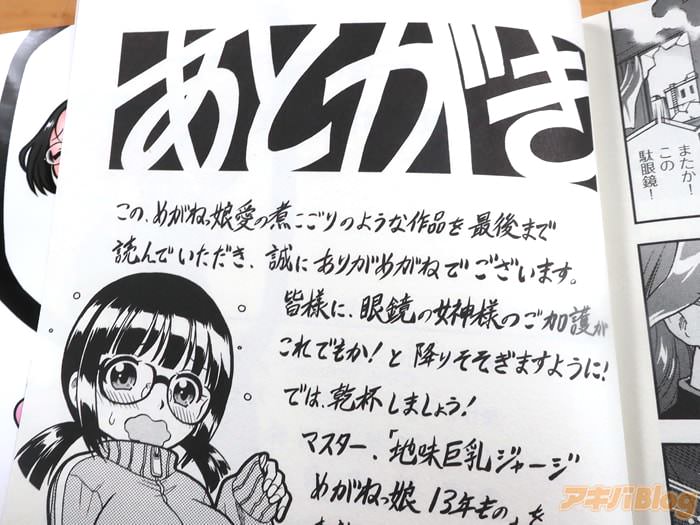 あとがき
この、めがねっ娘愛の煮こごりのような作品を最後まで
読んでいただき、誠にありがめがねでございます。
皆様に、眼鏡の女神様のご加護が
これでもか!と降りそそぎますように!
では、乾杯しましょう!
マスター、「地味巨乳ジャージ
めがねっ娘13年もの」を
またか
この
駄眼鏡!
アキバBlog